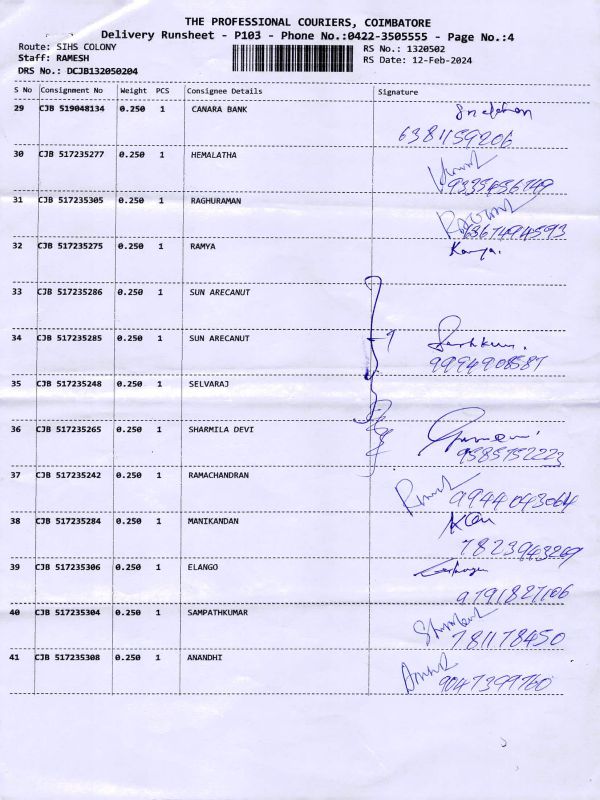 THE PROFESSIONAL COURIERS, COIMBATORE
Delivery Runsheet - P103 - Phone No.:0422-3505555 - Page No.:4
Route: SIHS COLONY
RS No.: 1320502
Staff: RAMESH
RS Date: 12-Feb-2024
DRS No.: DCJB132050204
S No Consignment No Weight PCS Consignee Details Signature
29 CJB 519048134 0.250 1 CANARA BANK
6381159206
30 CJB 517235277 0.250 1 HEMALATHA
31 CJB 517235305 0.250 1 RAGHURAMAN
32 CJB 517235275 0.250 1 RAMYA
33 CJB 517235286 0.250 1 SUN ARECANUT
34 CJB 517235285 0.250 1 SUN ARECANUT
9994908587
35 CJB 517235248 0.250 1 SELVARAJ
36 CJB 517235265 0.250 1 SHARMILA DEVI
9585752223
37 CJB 517235242 0.250 1 RAMACHANDRAN
9944043064
38 CJB 517235284 0.250 1 MANIKANDAN
39 CJB 517235306 0.250 1 ELANGO
9791827106
40 CJB 517235304 0.250 1 SAMPATHKUMAR
781178450
41 CJB 517235308 0.250 1 ANANDHI
9047399760